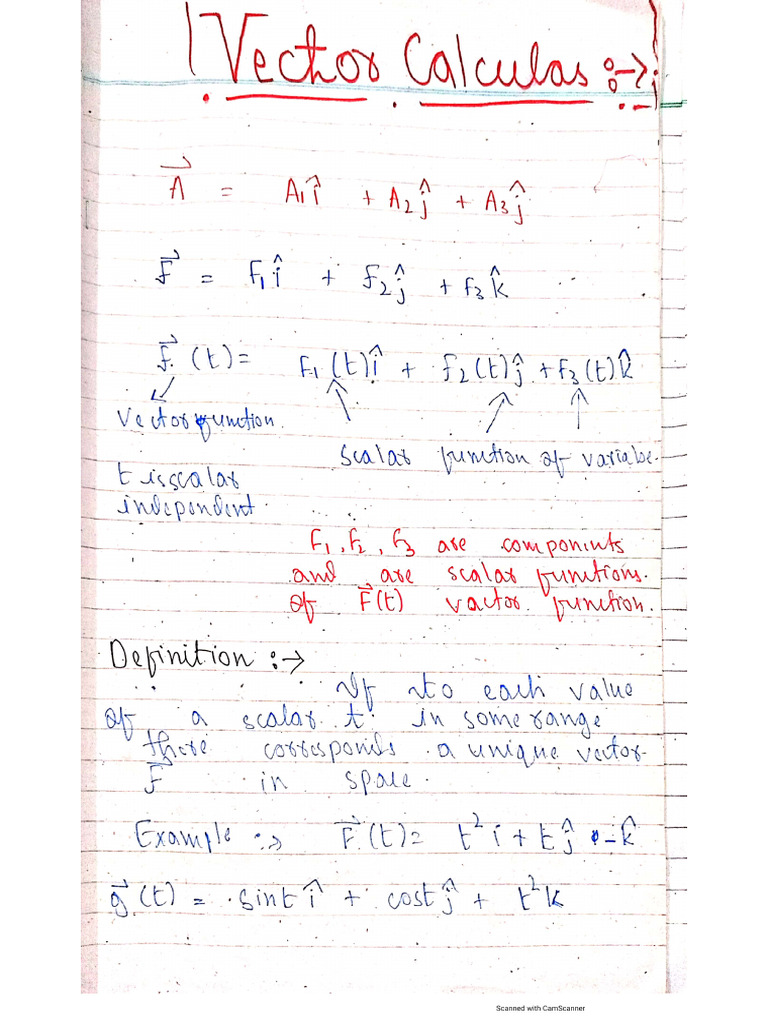 Vector Calculas :->
A⃗ = A₁î + A₂ĵ + A₃ĵ
F⃗ = F₁î + F₂ĵ + F₃k̂
F⃗ (t) = F₁(t)î + F₂(t)ĵ + F₃(t)k̂
Vector function.
Scalar function of variabe.
t is scalar
independent.
F₁, F₂, F₃ are componints
and are scalar functions.
of F⃗(t) vactor function.
Definition :->
If to each value
of a scalar t. in some range
there corresponds a unique vector
F⃗ in space.
Example :-> F⃗(t) = t² i + tĵ - k̂
g⃗ (t) = sint î + cost ĵ + t² k
Scanned with CamScanner